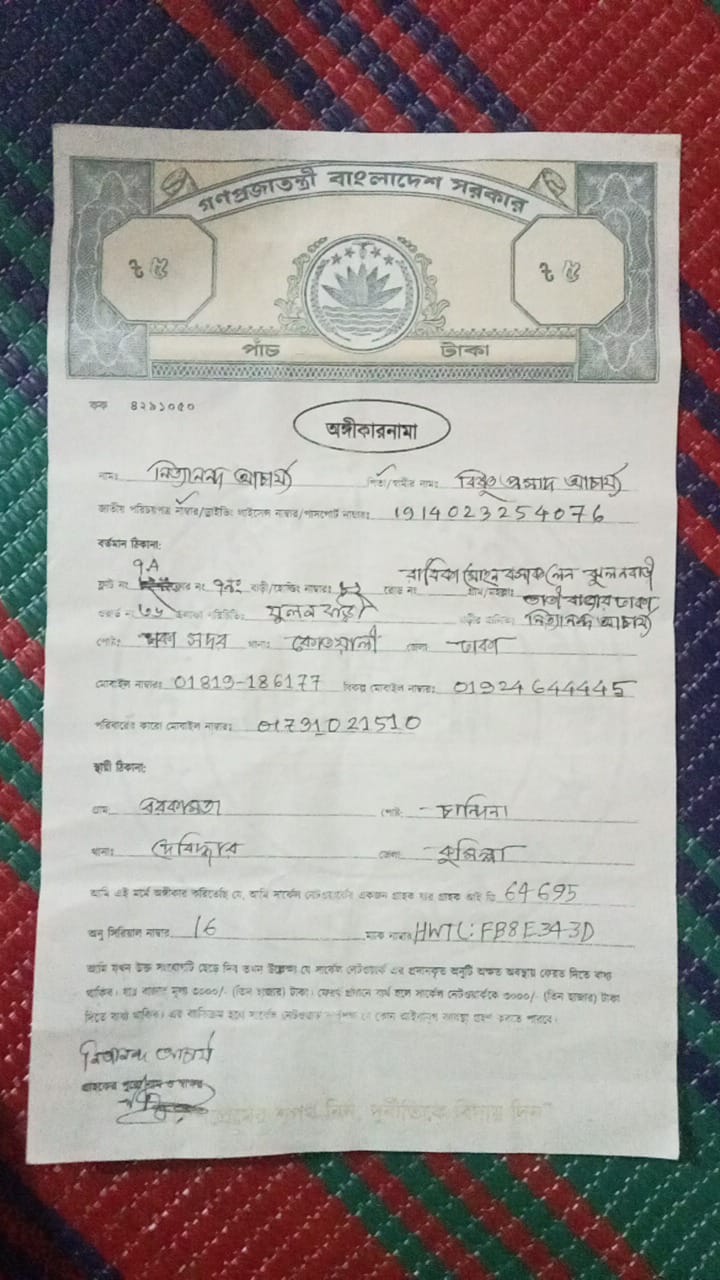 গণপ্রজাতন্ত্রী বাংলাদেশ সরকার
৳ ৫
৳ ৫
পাঁচ টাকা
কক ৪২৯১০৫০
অঙ্গীকারনামা
নামঃ নিত্যানন্দ আচার্য্য পিতা/স্বামীর নামঃ বিষ্ণু প্রসাদ আচার্য্য
জাতীয় পরিচয়পত্র নাম্বার/ড্রাইভিং লাইসেন্স নাম্বার/পাসপোর্ট নাম্বারঃ 1914023254076
বর্তমান ঠিকানা:
৭A রাধিকা মোহন বসাক লেন ঝুলনবাড়ী
ফ্লাট নং বাড়ী/হোল্ডিং নাম্বারঃ ৮২ রোড নং তাতী বাজার ঢাকা
ওয়ার্ড নং ৩৬ ঝুলন বাড়ী নিত্যানন্দ আচার্য্য
পোষ্টঃ ঢাকা সদর থানাঃ কোতয়ালী জেলা ঢাকা
মোবাইল নাম্বারঃ 01819-186177 বিকল্প মোবাইল নাম্বারঃ 01924644445
পরিবারের কারো মোবাইল নাম্বারঃ 01731021510
স্থায়ী ঠিকানা:
গ্রামঃ বরকামতা পোষ্ট: চান্দিনা
থানাঃ দেবিদ্বার জেলা: কুমিল্লা
আমি এই মর্মে অঙ্গীকার করিতেছি যে, আমি সার্কেল নেটওয়ার্কের একজন গ্রাহক যার গ্রাহক আই ডি 64695
অনু সিরিয়াল নাম্বার 16 ম্যাক নাম্বার HWTC: FB8E343D
আমি যখন উক্ত সংযোগটি ছেড়ে দিব তখন উল্লেখ্য যে সার্কেল নেটওয়ার্ক এর প্রদানকৃত অনুটি অক্ষত অবস্থায় ফেরত দিতে বাধ্য
থাকিব। যার বাজার মূল্য ৩০০০/- (তিন হাজার) টাকা। ফেরত প্রদানে ব্যর্থ হলে সার্কেল নেটওয়ার্ককে ৩০০০/- (তিন হাজার) টাকা
দিতে বাধ্য থাকিব। এর ব্যতিক্রম হলে সার্কেল নেটওয়ার্ক কর্তৃপক্ষ যে কোন আইনানুগ ব্যবস্থা গ্রহণ করতে পারবে।
নিত্যানন্দ আচার্য্য
গ্রাহকের পুরো নাম ও স্বাক্ষর
প্রেমের শপথ নিন, দুর্নীতিকে বিদায় দিন"